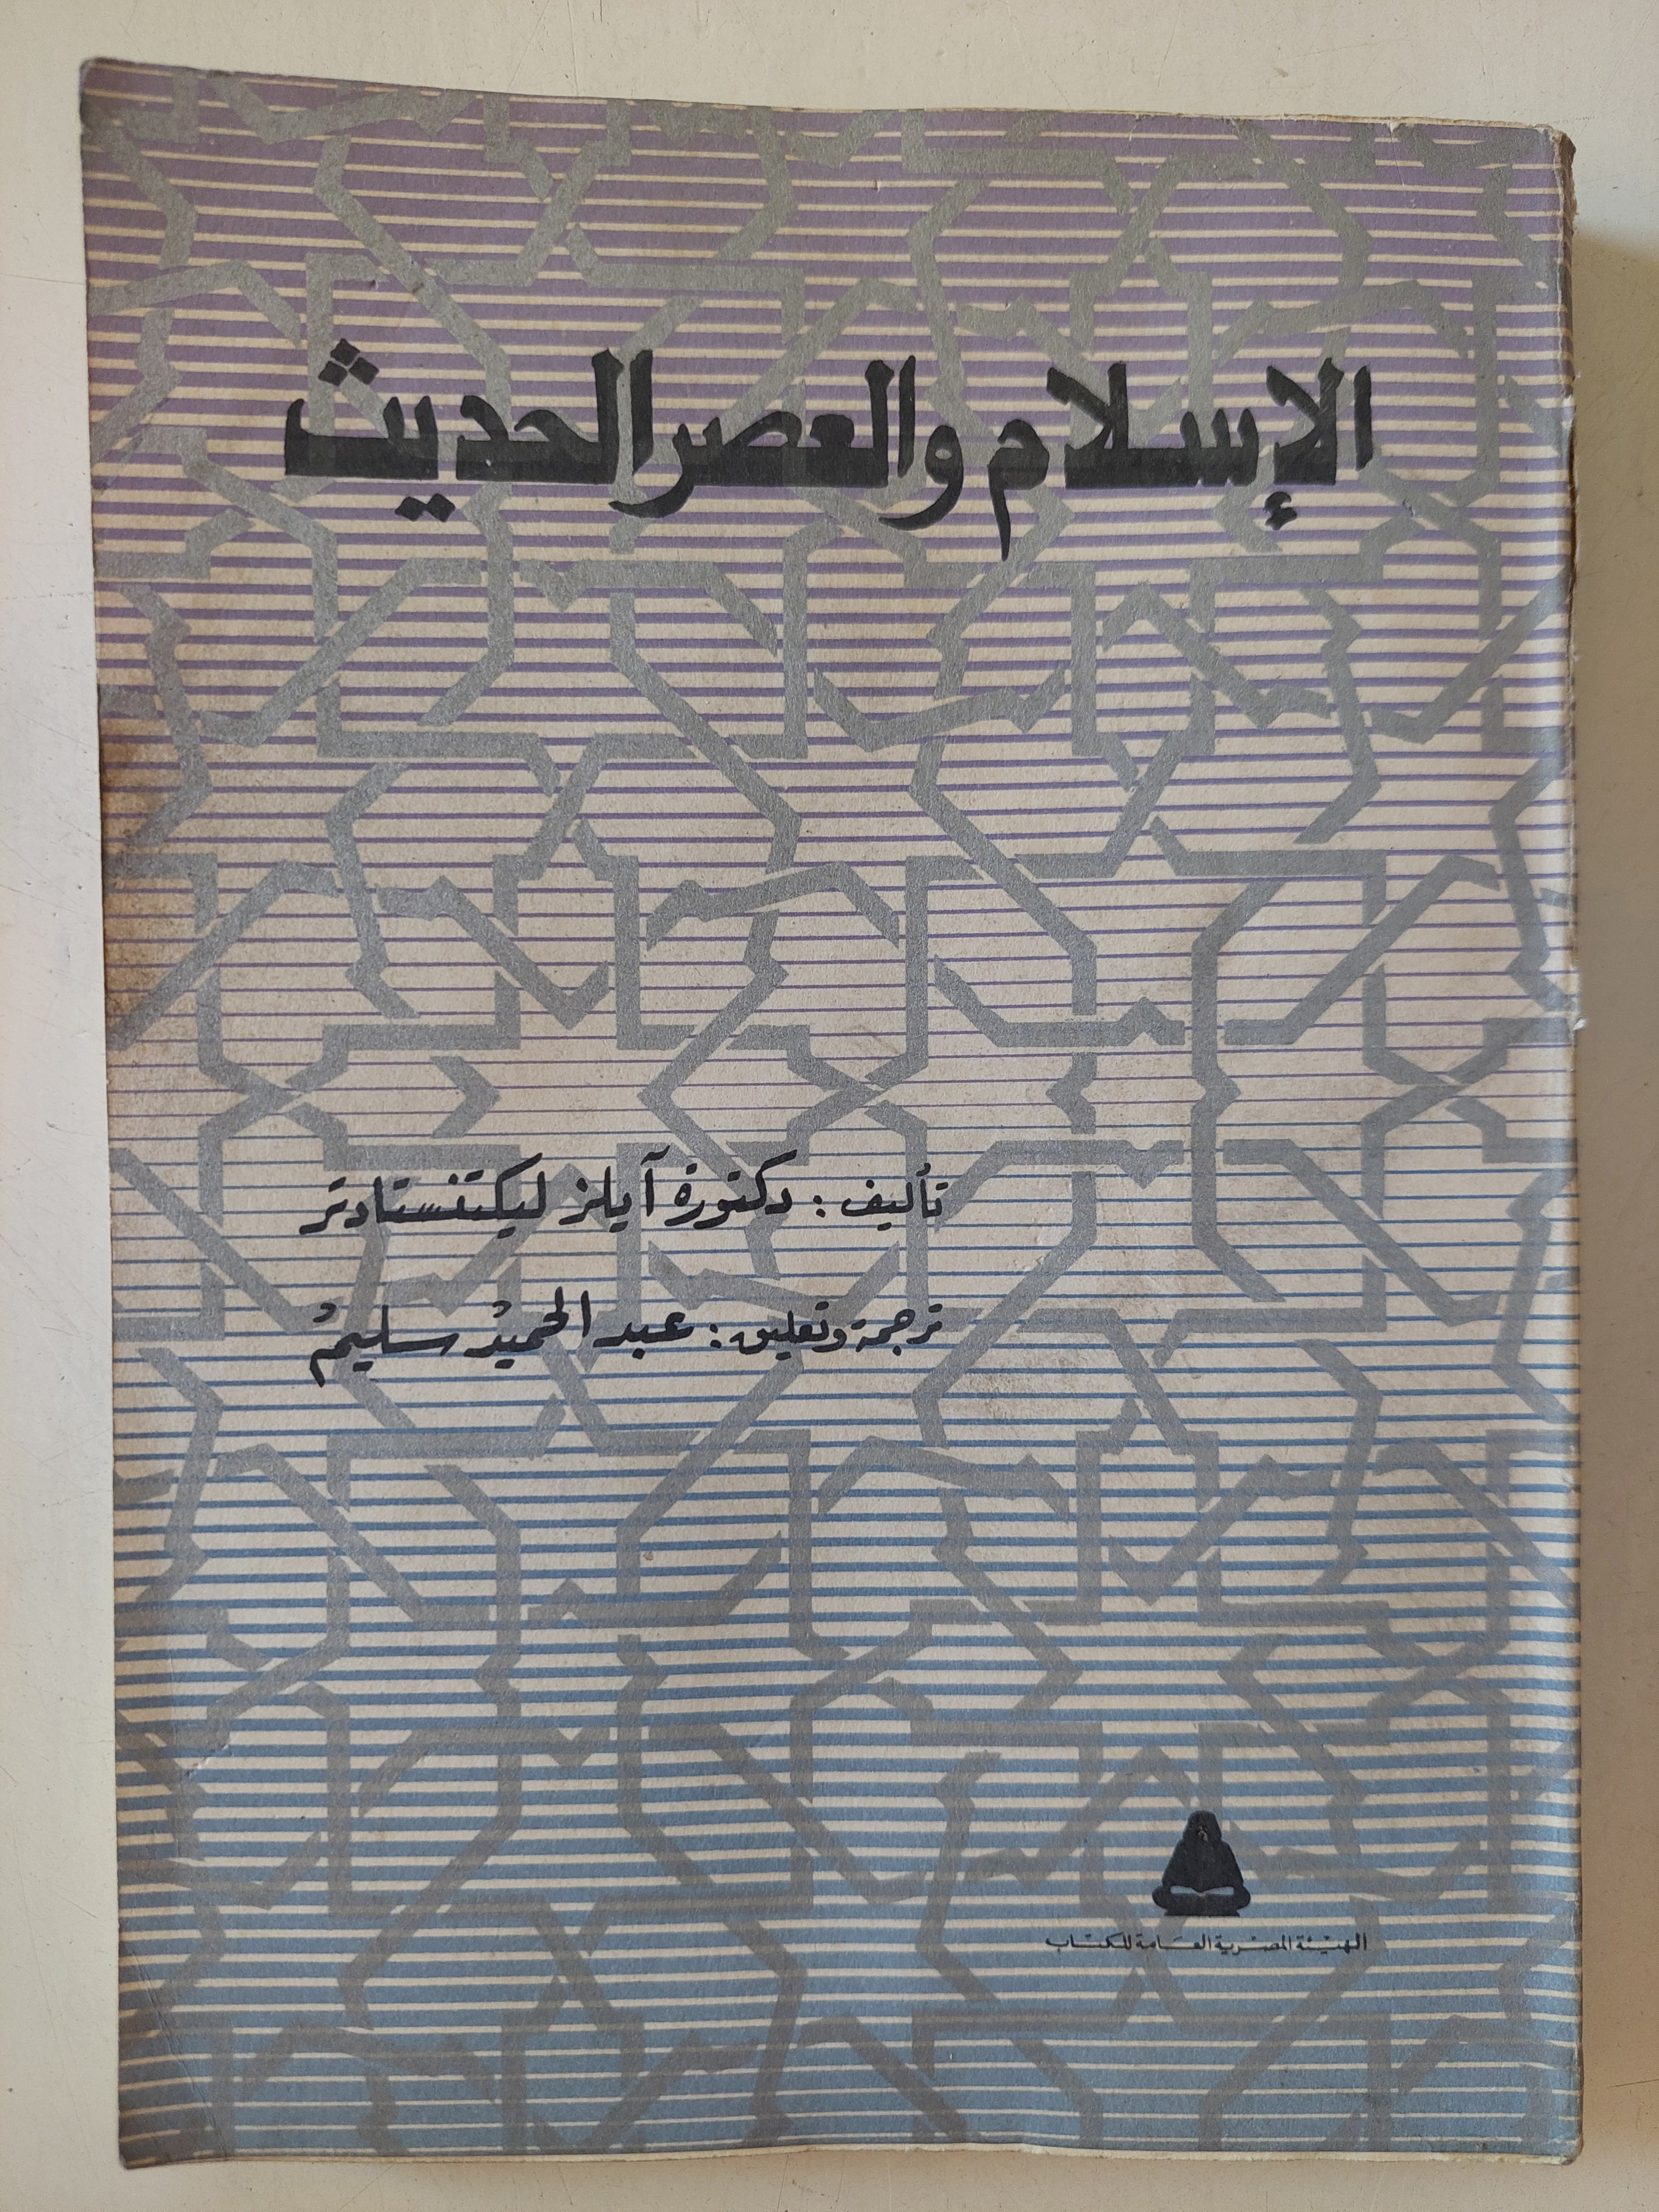 الإسلام والعصر الحديث
تأليف: دكتورة آيلز ليكتنستادتر
ترجمة وتعليق: عبد الحميد سليم
الهيئة المصرية العامة للكتاب